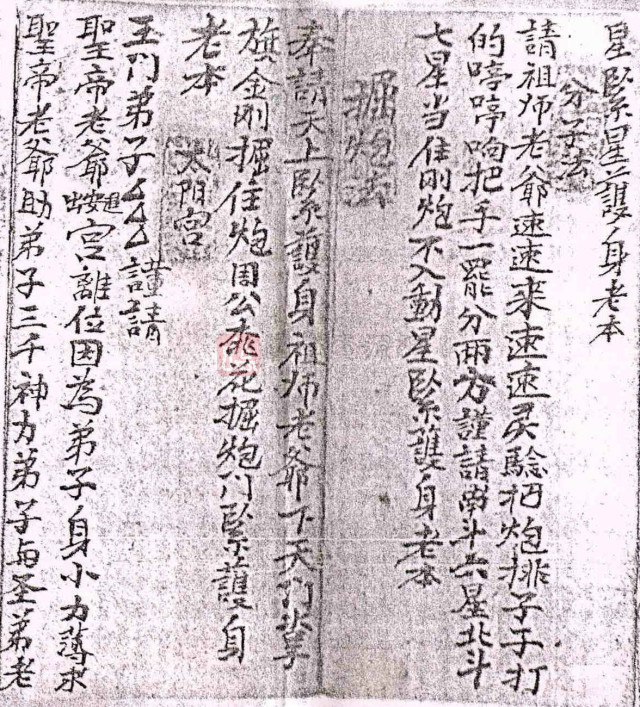 星緊星護身老本
分子法
請祖师老爺速速來速速灵驗把炮排子子打
的哼哼响把手一罷分兩方謹請南斗六星北斗
七星当住刚炮不入動星緊護身老本
掘炮法
奉請天上緊護身祖师老爷下天门
旗金刚掘住炮周公桃花掘炮门緊護身
老本
太阳宫
玉门弟子厶厶謹請
聖帝老爺宫離位因為弟子身小力薄求
聖帝老爺助弟子三千神力弟子与圣弟老